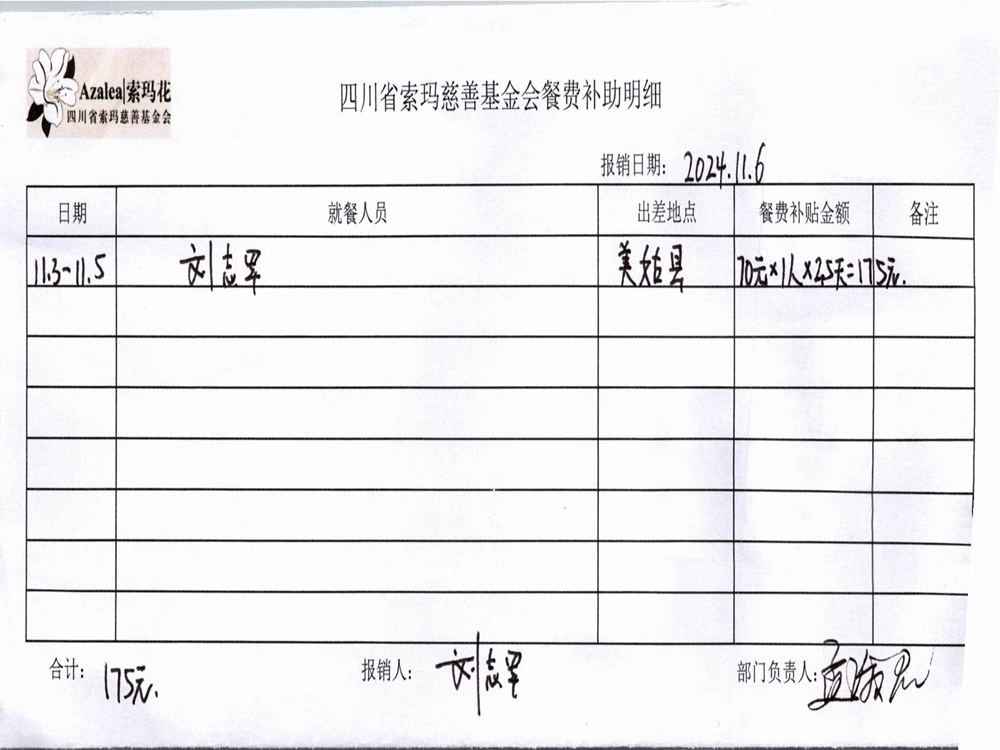 Azalea|索玛花
四川省索玛慈善基金会
四川省索玛慈善基金会餐费补助明细
报销日期: 2024.11.6
日期 就餐人员 出差地点 餐费补贴金额 备注
11.3-11.5 刘志军 美姑县 70元×1人×2.5天=175元.
合计: 175元.
报销人: 刘志军
部门负责人: